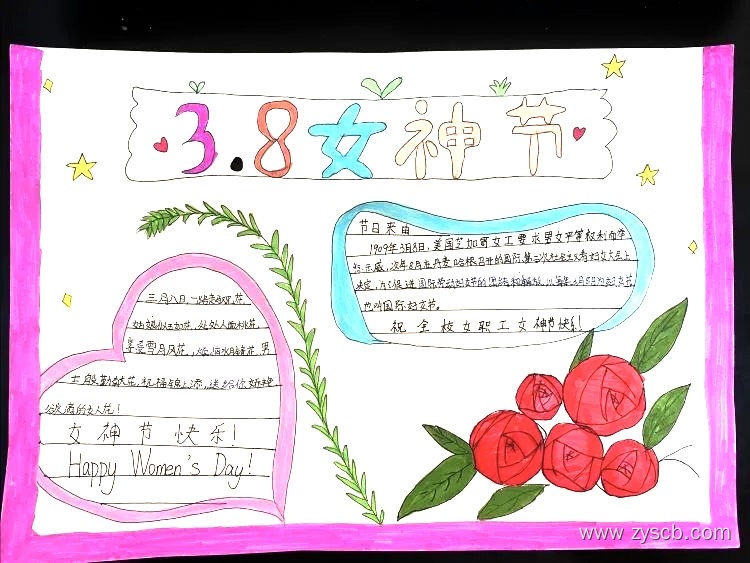 3.8女神节
节日来由
1909年3月8日，美国芝加哥女工要求男女平等权利而举
行示威，次年8月在丹麦哈根召开的国际第二次社会主义者妇女大会上
决定，为了促进国际劳动妇女的团结和解放，以每年3月8日为妇女节，
也叫国际妇女节。
祝全校女职工女神节快乐！
三月八日一
如花，处处人面桃花，
享受雪月风花，男
士殷勤献花，祝福锦上添，送给你娇艳
欲滴的女人花！
女神节快乐！
Happy Women's Day!
www.zyscb.com